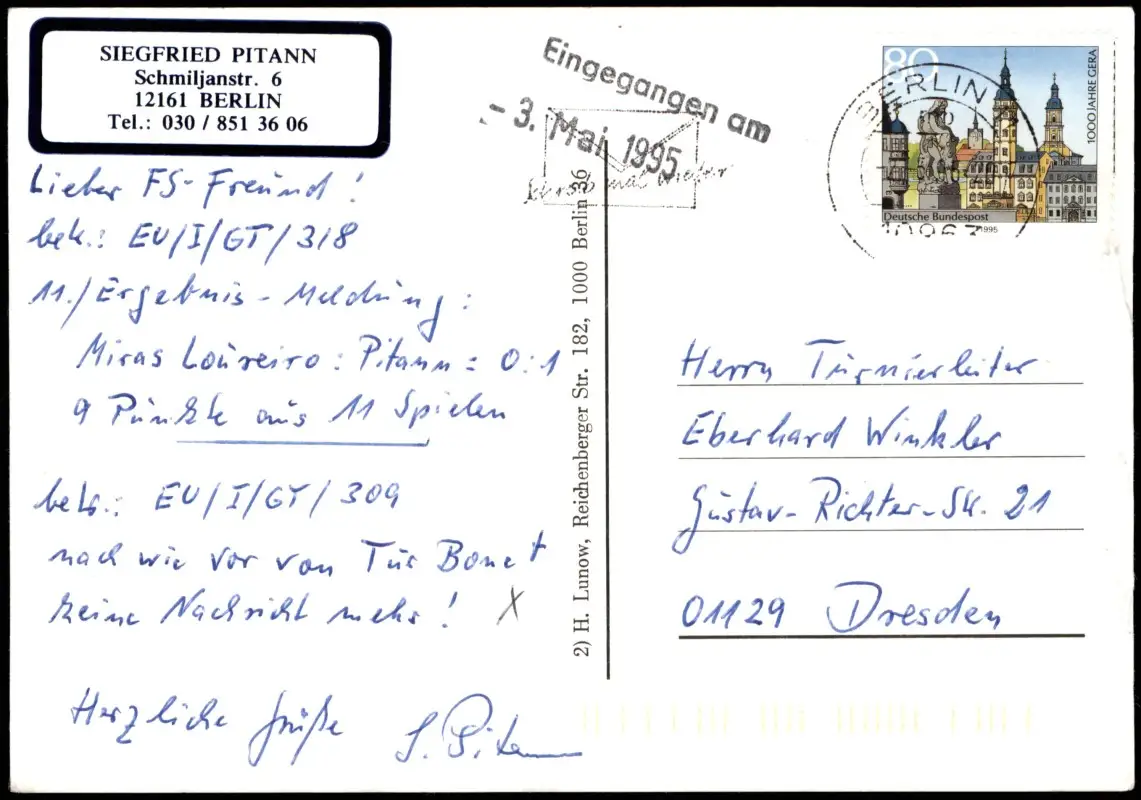 SIEGFRIED PITANN
Schmiljanstr. 6
12161 BERLIN
Tel.: 030 / 851 36 06
Lieber FS-Freund!
betr.: EU/I/GT/318
11./Ergebnis-Meldung:
Miras Loureiro : Pitann = 0:1
9 Punkte aus 11 Spielen
betr.: EU/I/GT/309
nach wie vor von Tur Bonet
keine Nachricht mehr! X
Herzliche Grüße S. Pitann
2) H. Lunow, Reichenberger Str. 182, 1000 Berlin 36
Eingegangen am
- 3. Mai 1995
Schreib mal wieder
80
BERLIN
1000 JAHRE GERA
Deutsche Bundespost
1995
10963
Herrn Turnierleiter
Eberhard Winkler
Gustav-Richter-Str. 21
01129 Dresden